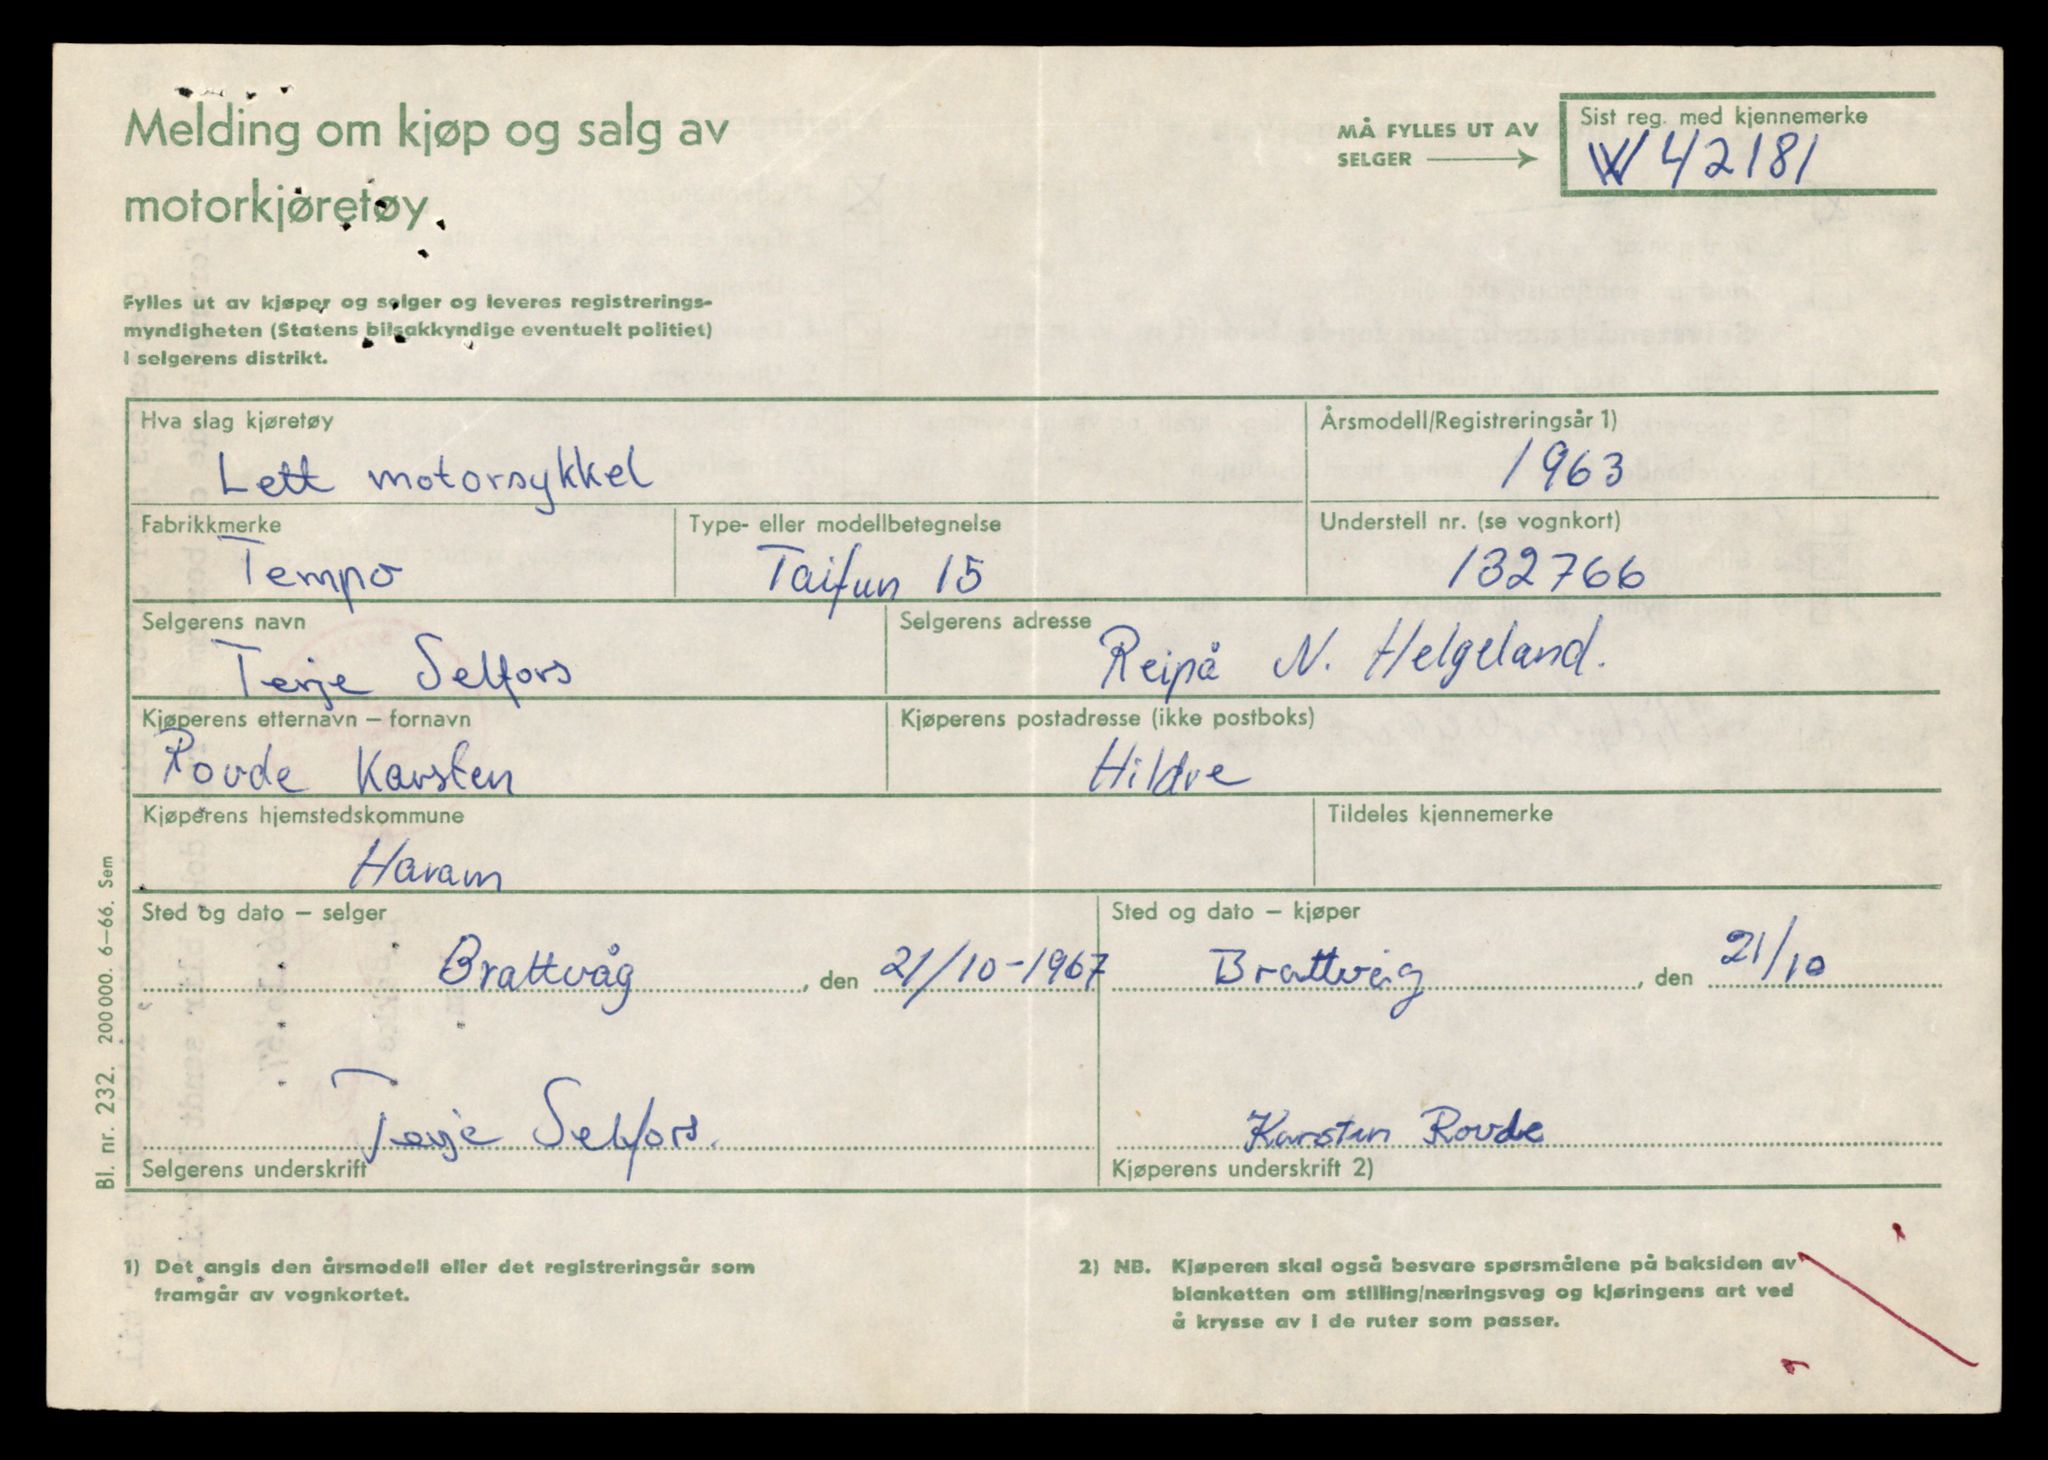 Melding om kjøp og salg av
motorkjøretøy
MÅ FYLLES UT AV
SELGER
Sist reg. med kjennemerke
W 42181
Fylles ut av kjøper og selger og leveres registrerings-
myndigheten (Statens bilsakkyndige eventuelt politiet)
i selgerens distrikt.
Hva slag kjøretøy
Lett motorsykkel
Årsmodell/Registreringsår 1)
1963
Fabrikkmerke
Tempo
Type- eller modellbetegnelse
Taifun 15
Understell nr. (se vognkort)
132766
Selgerens navn
Terje Selfors
Selgerens adresse
Reipå N. Helgeland.
Kjøperens etternavn – fornavn
Rovde Karsten
Kjøperens postadresse (ikke postboks)
Hildre
Kjøperens hjemstedskommune
Haram
Tildeles kjennemerke
Sted og dato – selger
Brattvåg, den 21/10-1967
Sted og dato – kjøper
Brattvåg, den 21/10
Terje Selfors.
Selgerens underskrift
Karsten Rovde
Kjøperens underskrift 2)
Bl. nr. 232. 200 000. 6–66. Sem
1) Det angis den årsmodell eller det registreringsår som
framgår av vognkortet.
2) NB. Kjøperen skal også besvare spørsmålene på baksiden av
blanketten om stilling/næringsveg og kjøringens art ved
å krysse av i de ruter som passer.